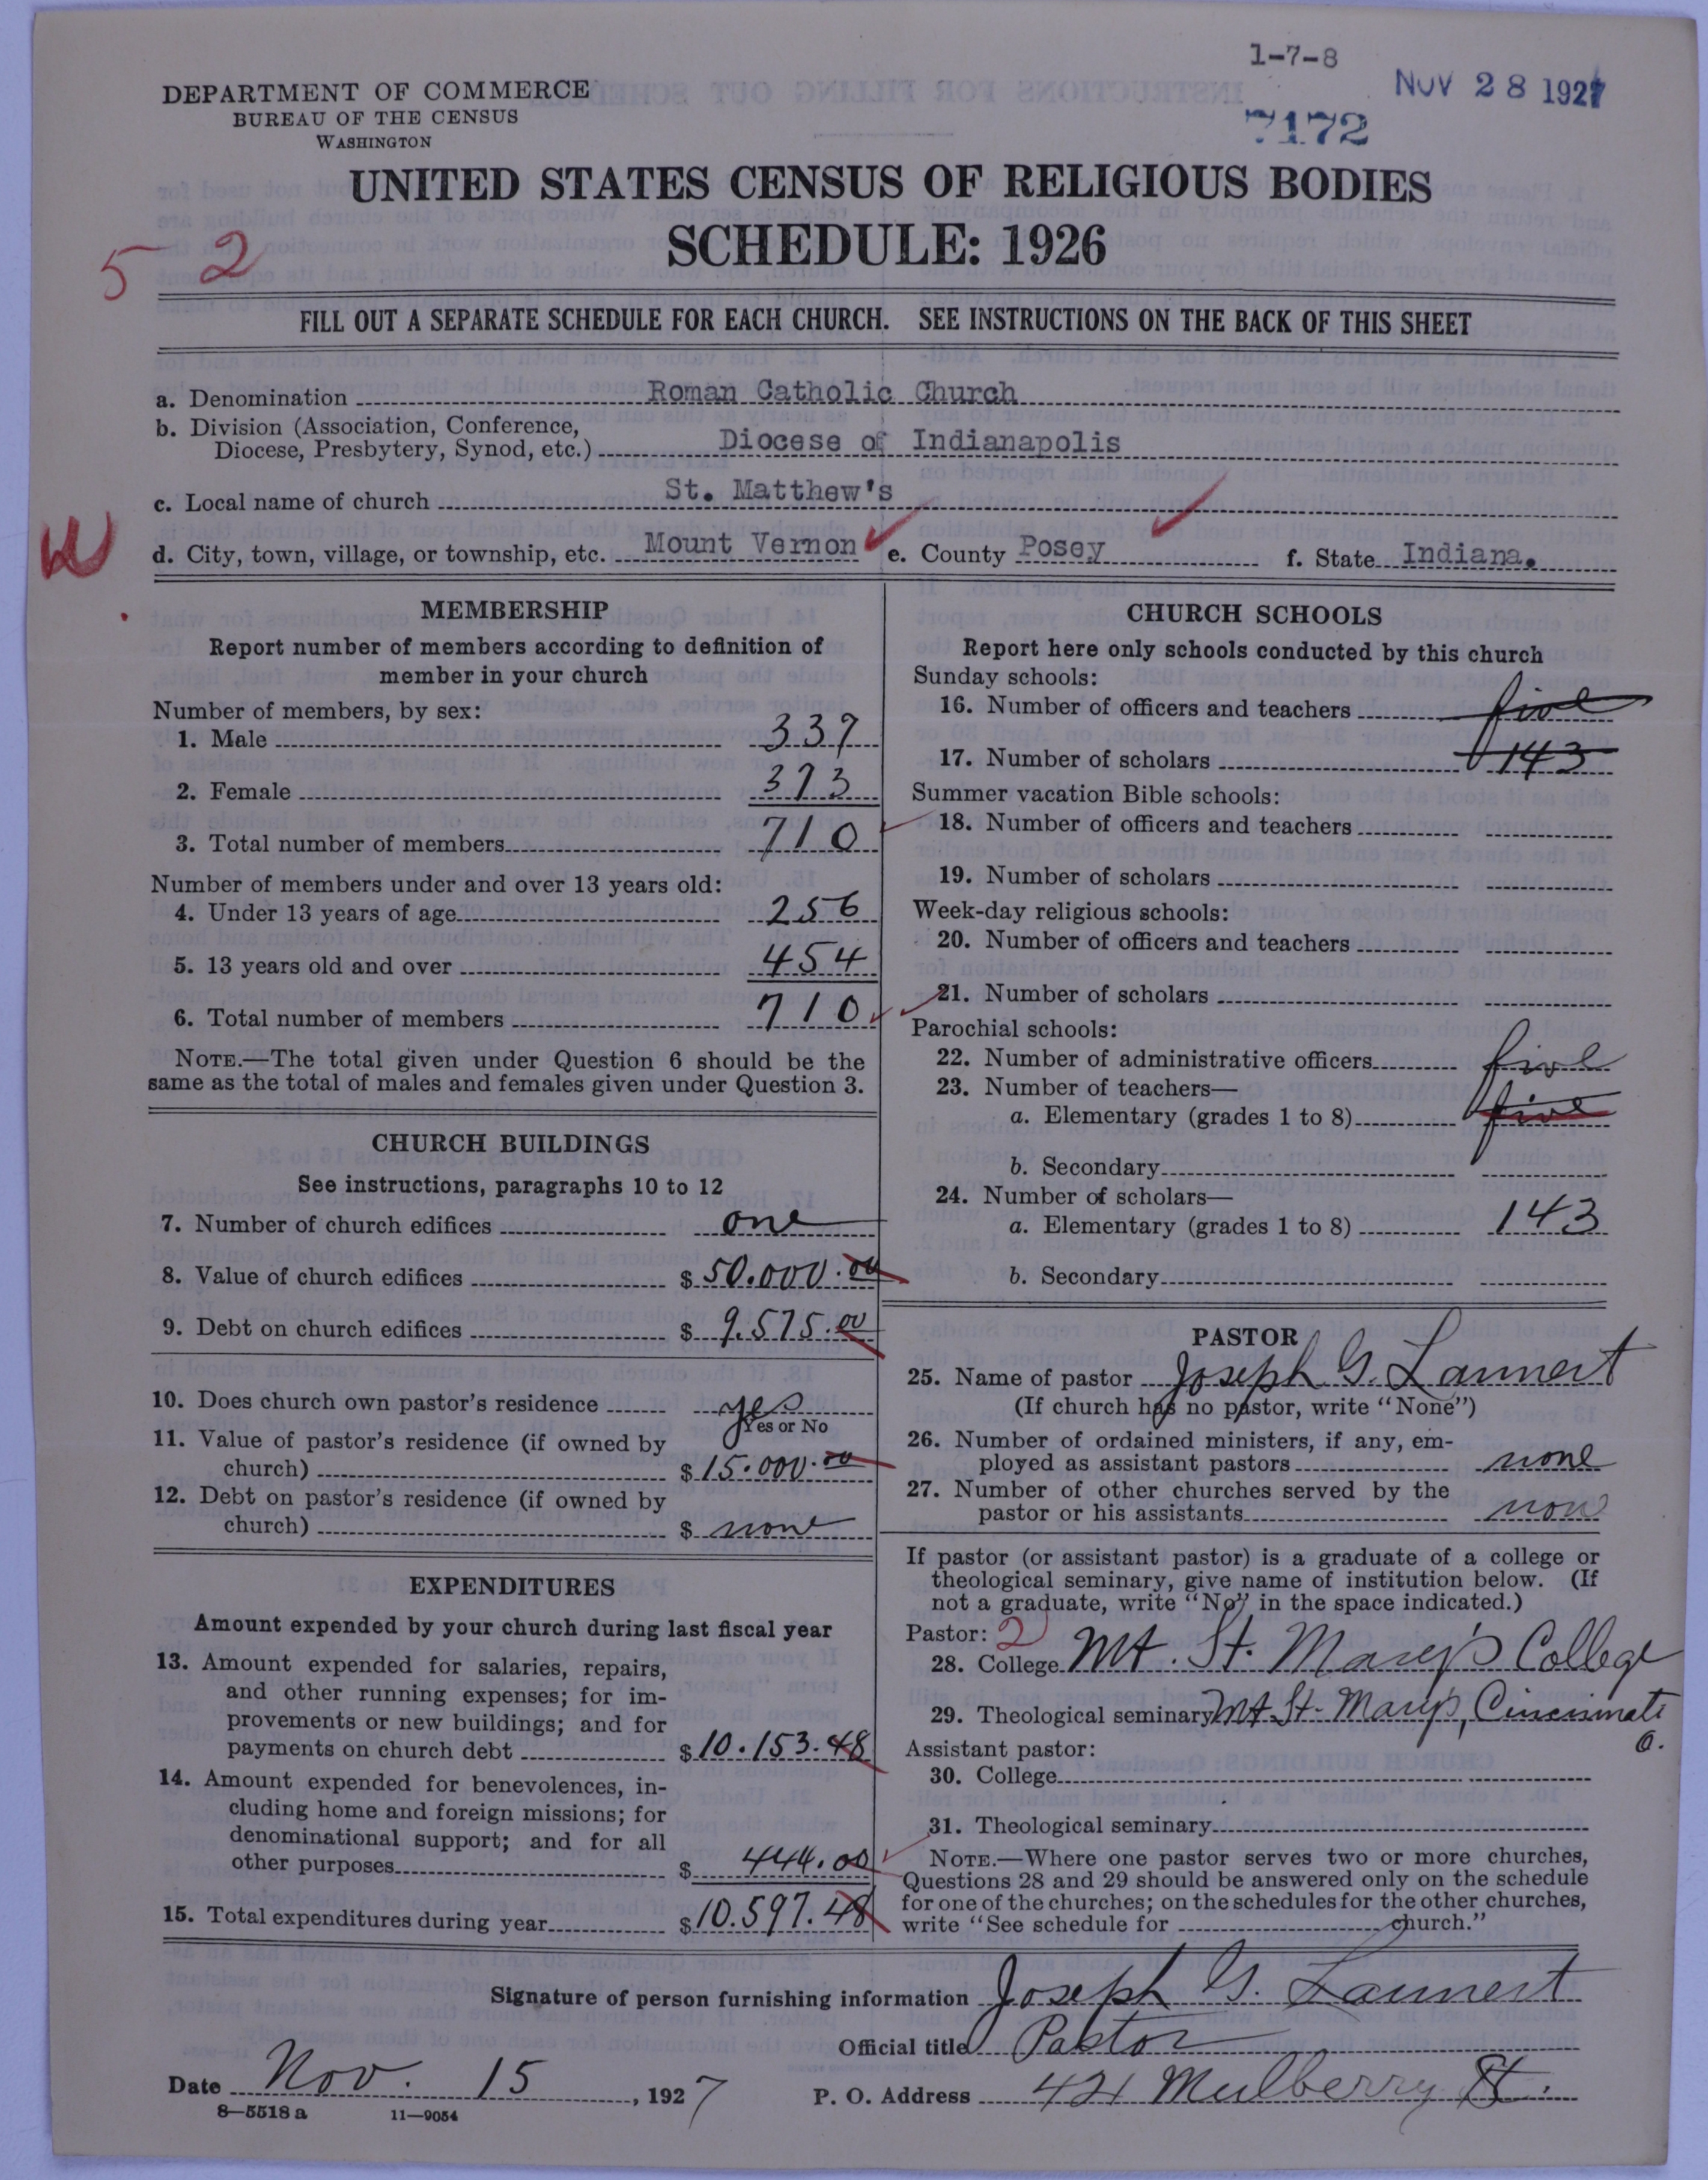 1-7-8
NOV 28 1927
7172
DEPARTMENT OF COMMERCE
BUREAU OF THE CENSUS
WASHINGTON
UNITED STATES CENSUS OF RELIGIOUS BODIES
SCHEDULE: 1926
5 2
FILL OUT A SEPARATE SCHEDULE FOR EACH CHURCH. SEE INSTRUCTIONS ON THE BACK OF THIS SHEET
a. Denomination Roman Catholic Church
b. Division (Association, Conference,
Diocese, Presbytery, Synod, etc.) Diocese of Indianapolis
c. Local name of church St. Matthew's
d. City, town, village, or township, etc. Mount Vernon e. County Posey f. State Indiana.
MEMBERSHIP
Report number of members according to definition of
member in your church
Number of members, by sex:
1. Male 337
2. Female 373
3. Total number of members 710
Number of members under and over 13 years old:
4. Under 13 years of age 256
5. 13 years old and over 454
6. Total number of members 710
NOTE.—The total given under Question 6 should be the
same as the total of males and females given under Question 3.
CHURCH BUILDINGS
See instructions, paragraphs 10 to 12
7. Number of church edifices one
8. Value of church edifices $ 50.000.00
9. Debt on church edifices $ 9.575.00
10. Does church own pastor's residence yes
Yes or No
11. Value of pastor's residence (if owned by
church) $ 15.000.00
12. Debt on pastor's residence (if owned by
church) $ none
EXPENDITURES
Amount expended by your church during last fiscal year
13. Amount expended for salaries, repairs,
and other running expenses; for im-
provements or new buildings; and for
payments on church debt $ 10.153.48
14. Amount expended for benevolences, in-
cluding home and foreign missions; for
denominational support; and for all
other purposes $ 444.00
15. Total expenditures during year $ 10.597.48
CHURCH SCHOOLS
Report here only schools conducted by this church
Sunday schools:
16. Number of officers and teachers five
17. Number of scholars 143
Summer vacation Bible schools:
18. Number of officers and teachers
19. Number of scholars
Week-day religious schools:
20. Number of officers and teachers
21. Number of scholars
Parochial schools:
22. Number of administrative officers five
23. Number of teachers—
a. Elementary (grades 1 to 8) five
b. Secondary
24. Number of scholars—
a. Elementary (grades 1 to 8) 143
b. Secondary
PASTOR
25. Name of pastor Joseph G. Lannert
(If church has no pastor, write "None")
26. Number of ordained ministers, if any, em-
ployed as assistant pastors none
27. Number of other churches served by the
pastor or his assistants none
If pastor (or assistant pastor) is a graduate of a college or
theological seminary, give name of institution below. (If
not a graduate, write "No" in the space indicated.)
Pastor: 2
28. College Mt. St. Mary's College
29. Theological seminary Mt St. Mary's, Cincinnati
O.
Assistant pastor:
30. College
31. Theological seminary
NOTE.—Where one pastor serves two or more churches,
Questions 28 and 29 should be answered only on the schedule
for one of the churches; on the schedules for the other churches,
write "See schedule for church."
Signature of person furnishing information Joseph G. Lannert
Official title Pastor
Date Nov. 15, 1927 P. O. Address 421 Mulberry St.
8—5518 a 11—9054